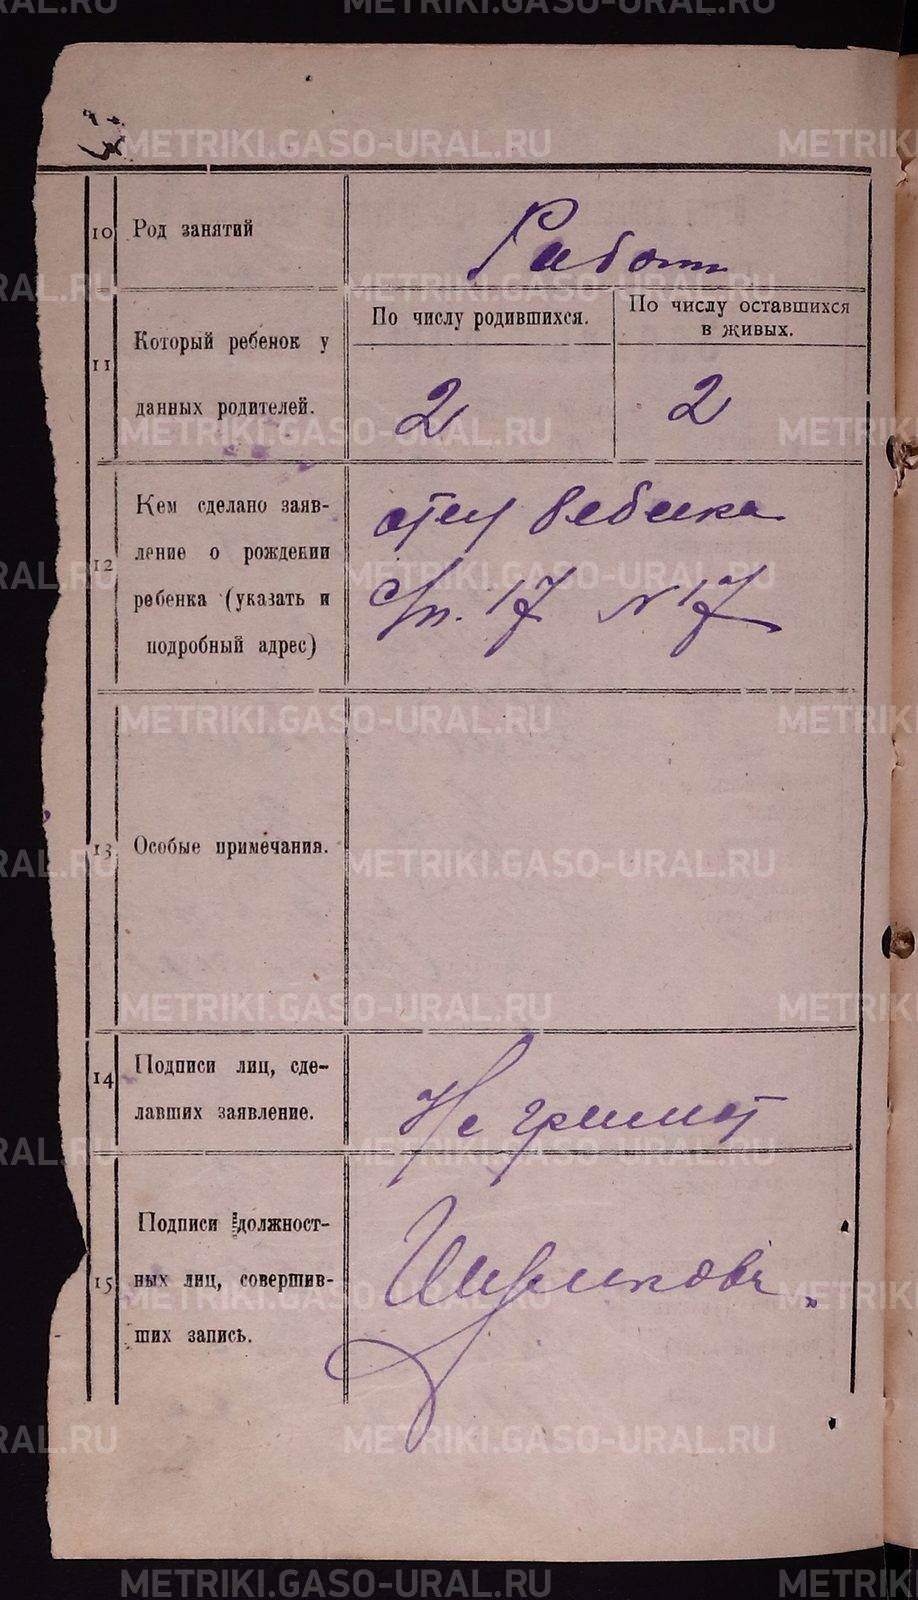 METRIKI.GASO-URAL.RU
10 Род занятий
Работ
11 Который ребенок у
данных родителей.
По числу родившихся.
2
По числу оставшихся
в живых.
2
12 Кем сделано заяв-
ление о рождении
ребенка (указать и
подробный адрес)
отец ребенка
17 N 17
13 Особые примечания.
14 Подписи лиц, сде-
лавших заявление.
Не грамот
15 Подписи должност-
ных лиц, совершив-
ших запись.